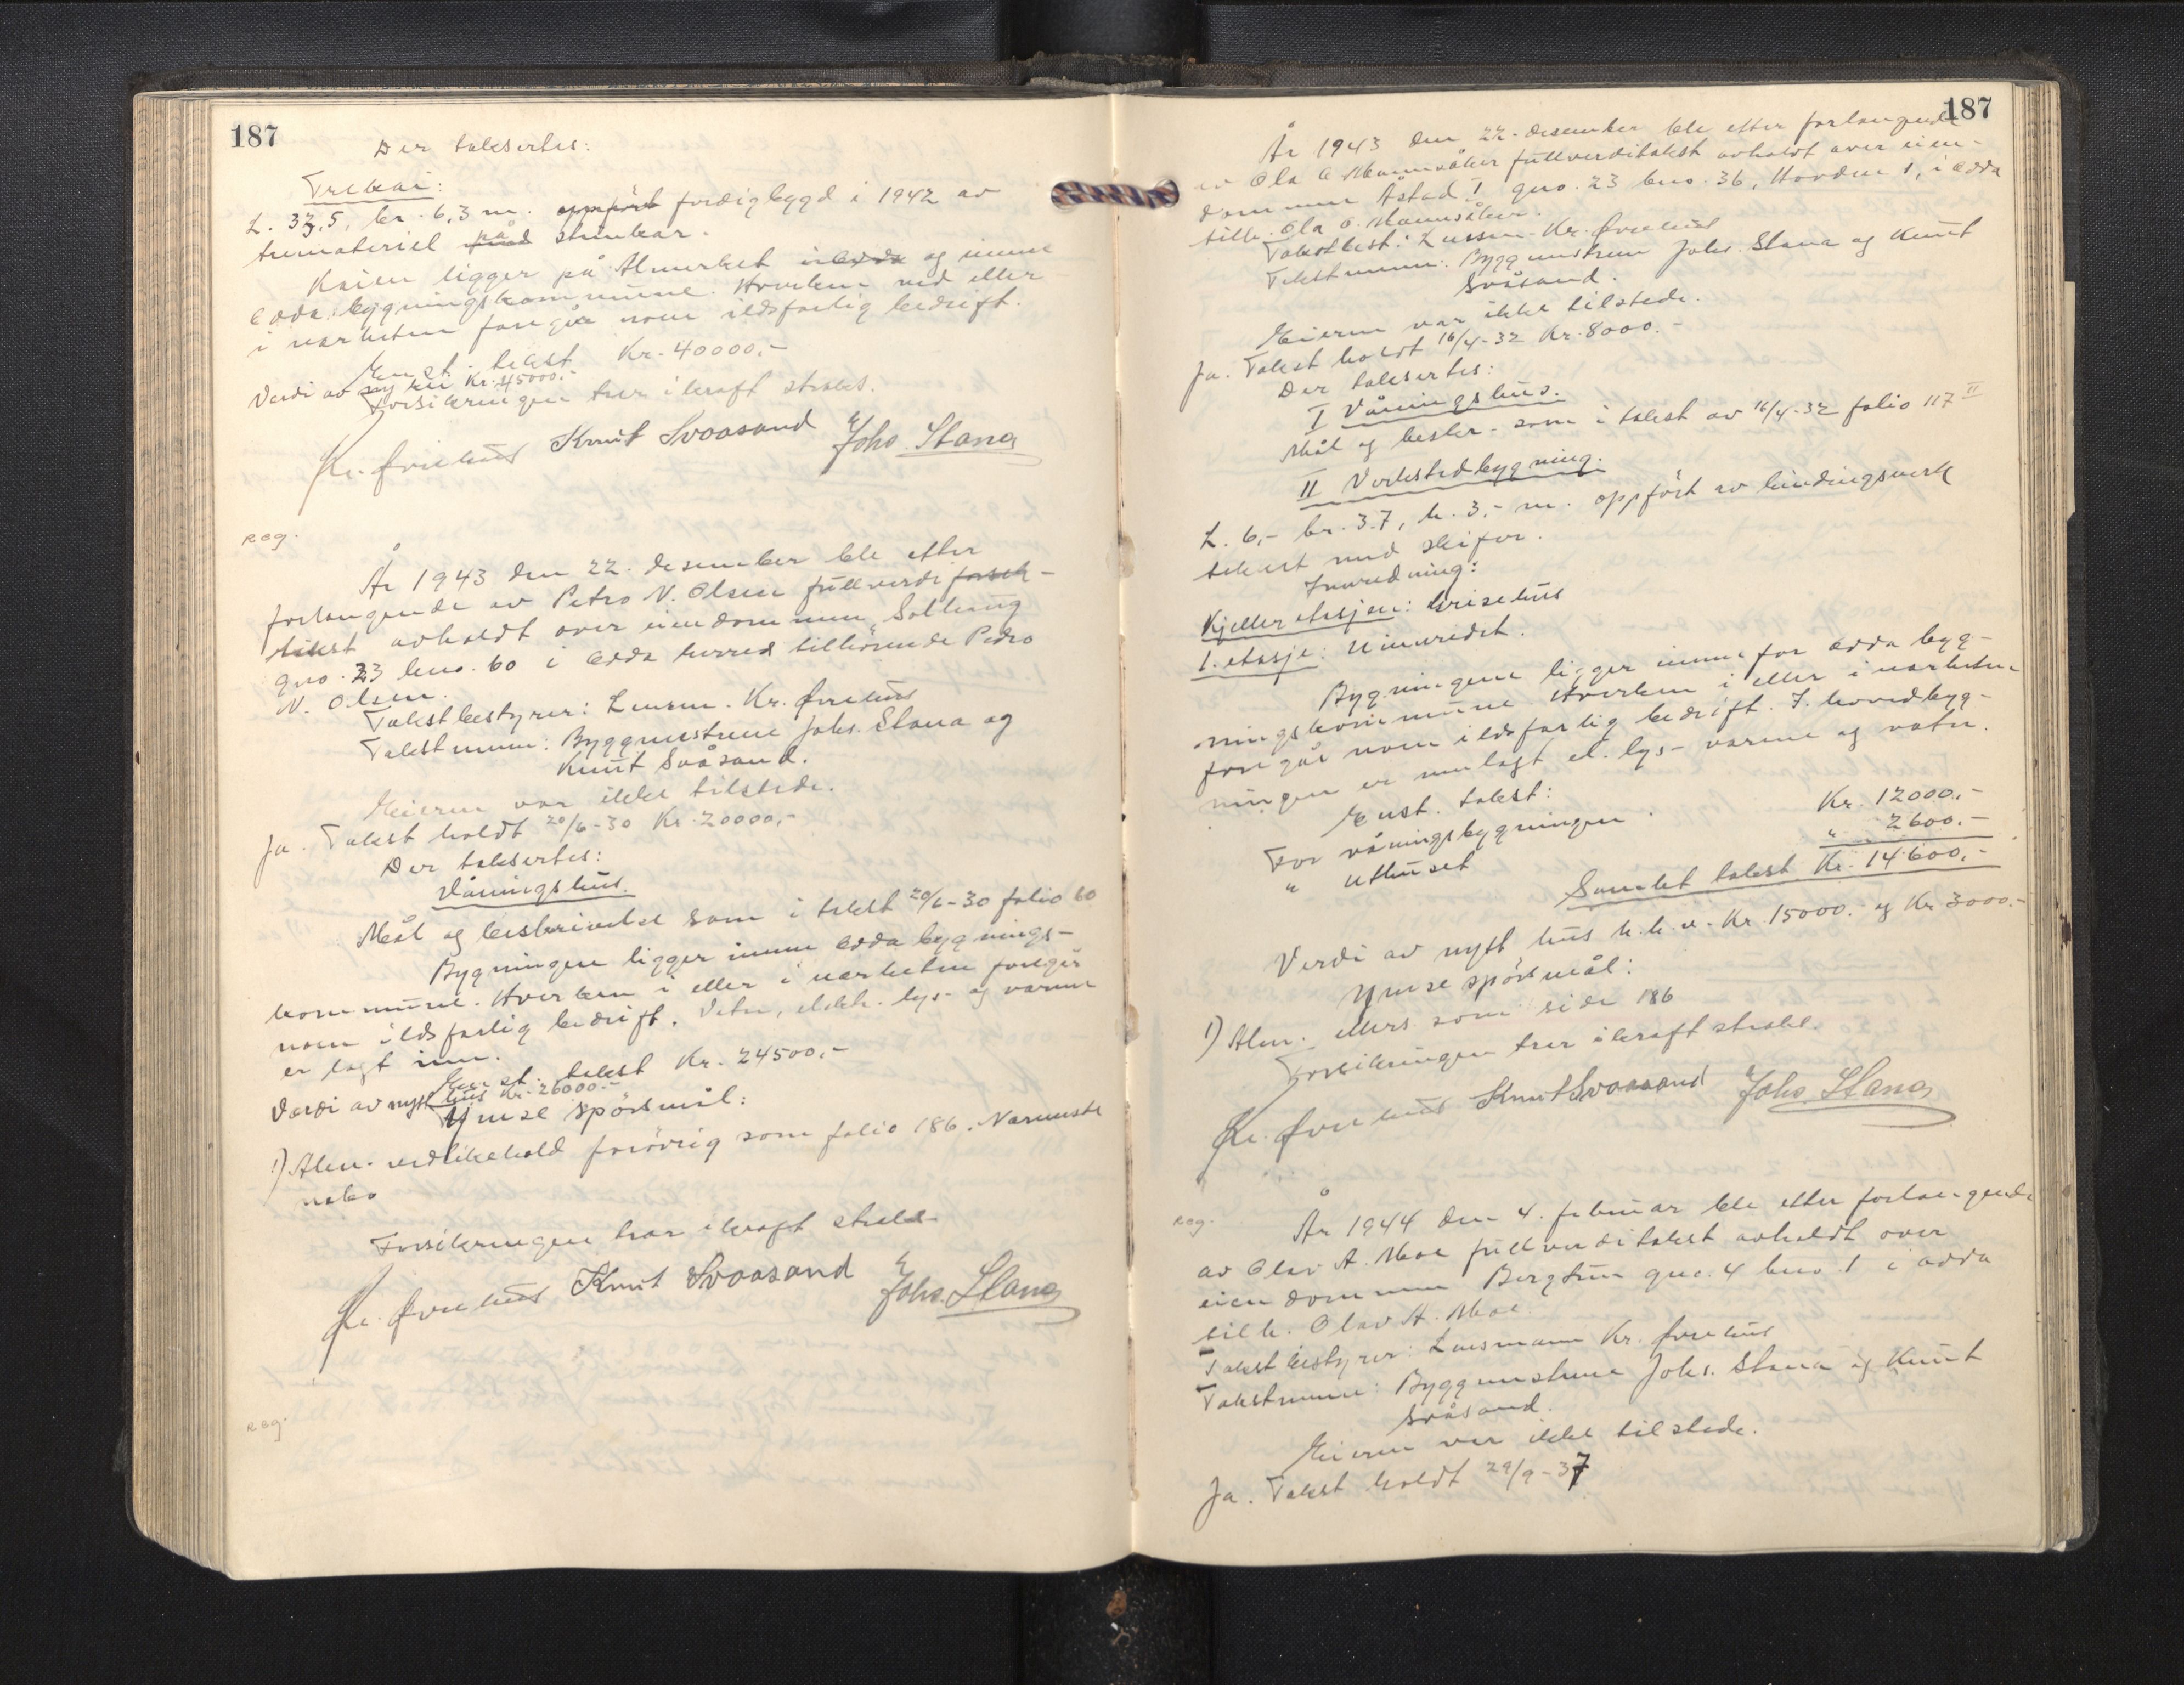 187
Der taksertes:
Trekai:
L. 33,5, br. 6,3 m. oppført ferdigbygd i 1942 av
tremateriel på stenkar.
Kaien ligger på Almerket i Odda og innen
Odda bygningskommune. Hverken ved eller
i nærheten foregår noen ildsfarlig bedrift.
Enst. takst Kr. 40000.-
Verdi av ny kai Kr. 45000.-
Forsikringen trer i kraft straks.
Kr. Øvrehus Knut Svoasand Johs. Stana
Reg.
År 1943 den 22. desember ble etter
forlangende av Petro N. Olsen fullverdi forsik-
takst avholdt over eiendommen "Solhaug"
gno. 23 bno. 60 i Odda herred tilhörende Pedro
N. Olsen.
Takstbestyrer: Lensm. Kr. Øvrehus
Takstmenn: Byggmestrene Johs. Stana og
Knut Svåsand.
Eieren var ikke tilstede.
Ja. Takst holdt 20/6-30 Kr. 20000,-
Der taksertes:
Våningshus.
Mål og beskrivelse som i takst 20/6-30 folio 60
Bygningen ligger innen Odda bygnings-
kommune. Hverken i eller i nærheten foregår
noen ildsfarlig bedrift. Vatn, elektr. lys- og varme
er lagt inn.
Enst. takst Kr. 24500,-
Verdi av nytt hus Kr. 26000.-
Ymse spörsmål:
1) Alm. vedlikehold forövrig som folio 186. Nærmeste
nabo
Forsikringen trer i kraft straks
Kr. Øvrehus Knut Svoasand Johs. Stana
Reg.
187
År 1943 den 22. desember ble etter forlangende
av Ola O. Mannsåker fullverditakst avholdt over eien-
dommen Åstad I gno. 23 bno. 36, Hovden 1, i Odda
tilh. Ola O. Mannsåker.
Takstbest: Lensm. Kr. Øvrehus
Takstmenn: Byggmestrene Johs. Stana og Knut
Svåsand.
Eieren var ikke tilstede.
Ja. Takst holdt 16/4-32 Kr. 8000.-
Der taksertes:
I Våningshus.
Mål og beskr. som i takst av 16/4-32 folio 117 II
II Verkstedbygning.
L. 6,- br. 3.7, h. 3,- m. oppfört av bindingsverk
tekket med skifer.
Innredning:
Kjelleretasjen: Grisehus
1. etasje: Uinnredet.
Bygningene ligger innenfor Odda byg-
ningskommune. Hverken i eller i nærheten
foregår noen ildsfarlig bedrift. I hovedbyg-
ningen er innlagt el. lys- varme og vatn.
Enst. takst:
For våningsbygningen. Kr. 12000,-
" uthuset " 2600.-
Samlet takst Kr. 14600,-
Verdi av nytt hus h.h.v. Kr. 15000.- og Kr 3000.-
Ymse spörsmål:
1) Alm. ellers som side 186
Forsikringen trer i kraft straks.
Kr. Øvrehus Knut Svoasand Johs. Stana
Reg.
År 1944 den 4. februar ble etter forlangende
av Olav A. Moe fullverditakst avholdt over
eiendommen Bergtun gno. 4 bno. 1 i Odda
tilh. Olav A. Moe.
Takstbestyrer: Lensmann Kr. Øvrehus
Takstmenn: Byggmestrene Johs. Stana og Knut
Svåsand.
Eieren var ikke tilstede.
Ja. Takst holdt 29/9-37